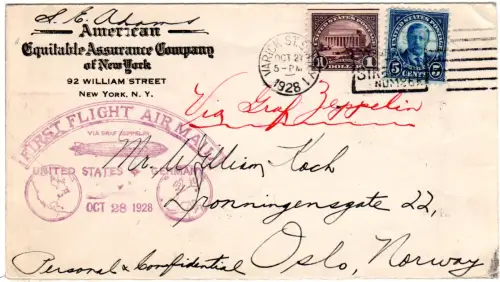 S. E. Adams
American
Equitable Assurance Company
of New York
92 WILLIAM STREET
NEW YORK, N. Y.
UNITED STATES POSTAGE
1 DOLLAR 1
UNITED STATES POSTAGE
5 CENTS 5
VARICK ST. STA.
OCT 27
5-PM
1928
Via Graf Zeppelin
FIRST FLIGHT AIR MAIL
VIA GRAF ZEPPELIN
UNITED STATES GERMANY
OCT 28 1928
Mr. William Koch
Dronningensgate 22,
Oslo, Norway
Personal & Confidential